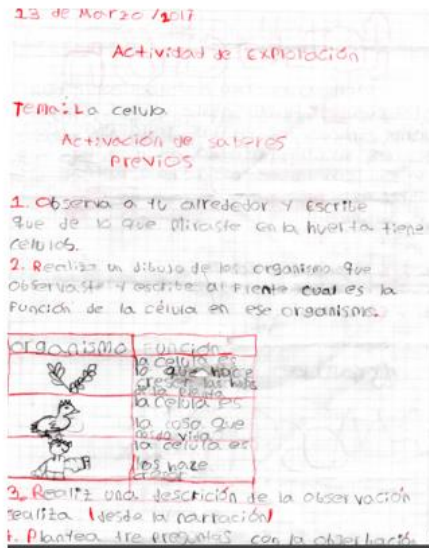 23 de Marzo /2017
Actividad de Exploración
Tema: La celula
Activación de saberes
Previos
1. Observa a tu alrrededor y Escribe
que de lo que Miraste en la huerta tiene
celulas.
2. Realiza un dibujo de los organismo que
observaste y escribe al frente cual es la
Función de la célula en ese organismo.
organismo Función
la celula es
lo que hace
crecer las hojas
de la planta
la celula es
la cosa que
da vida
la celula es
los haze
crecer
3. Realiz una descrición de la observación
realiza (desde la narración)
4. Plantea tre preguntas con la obserbación